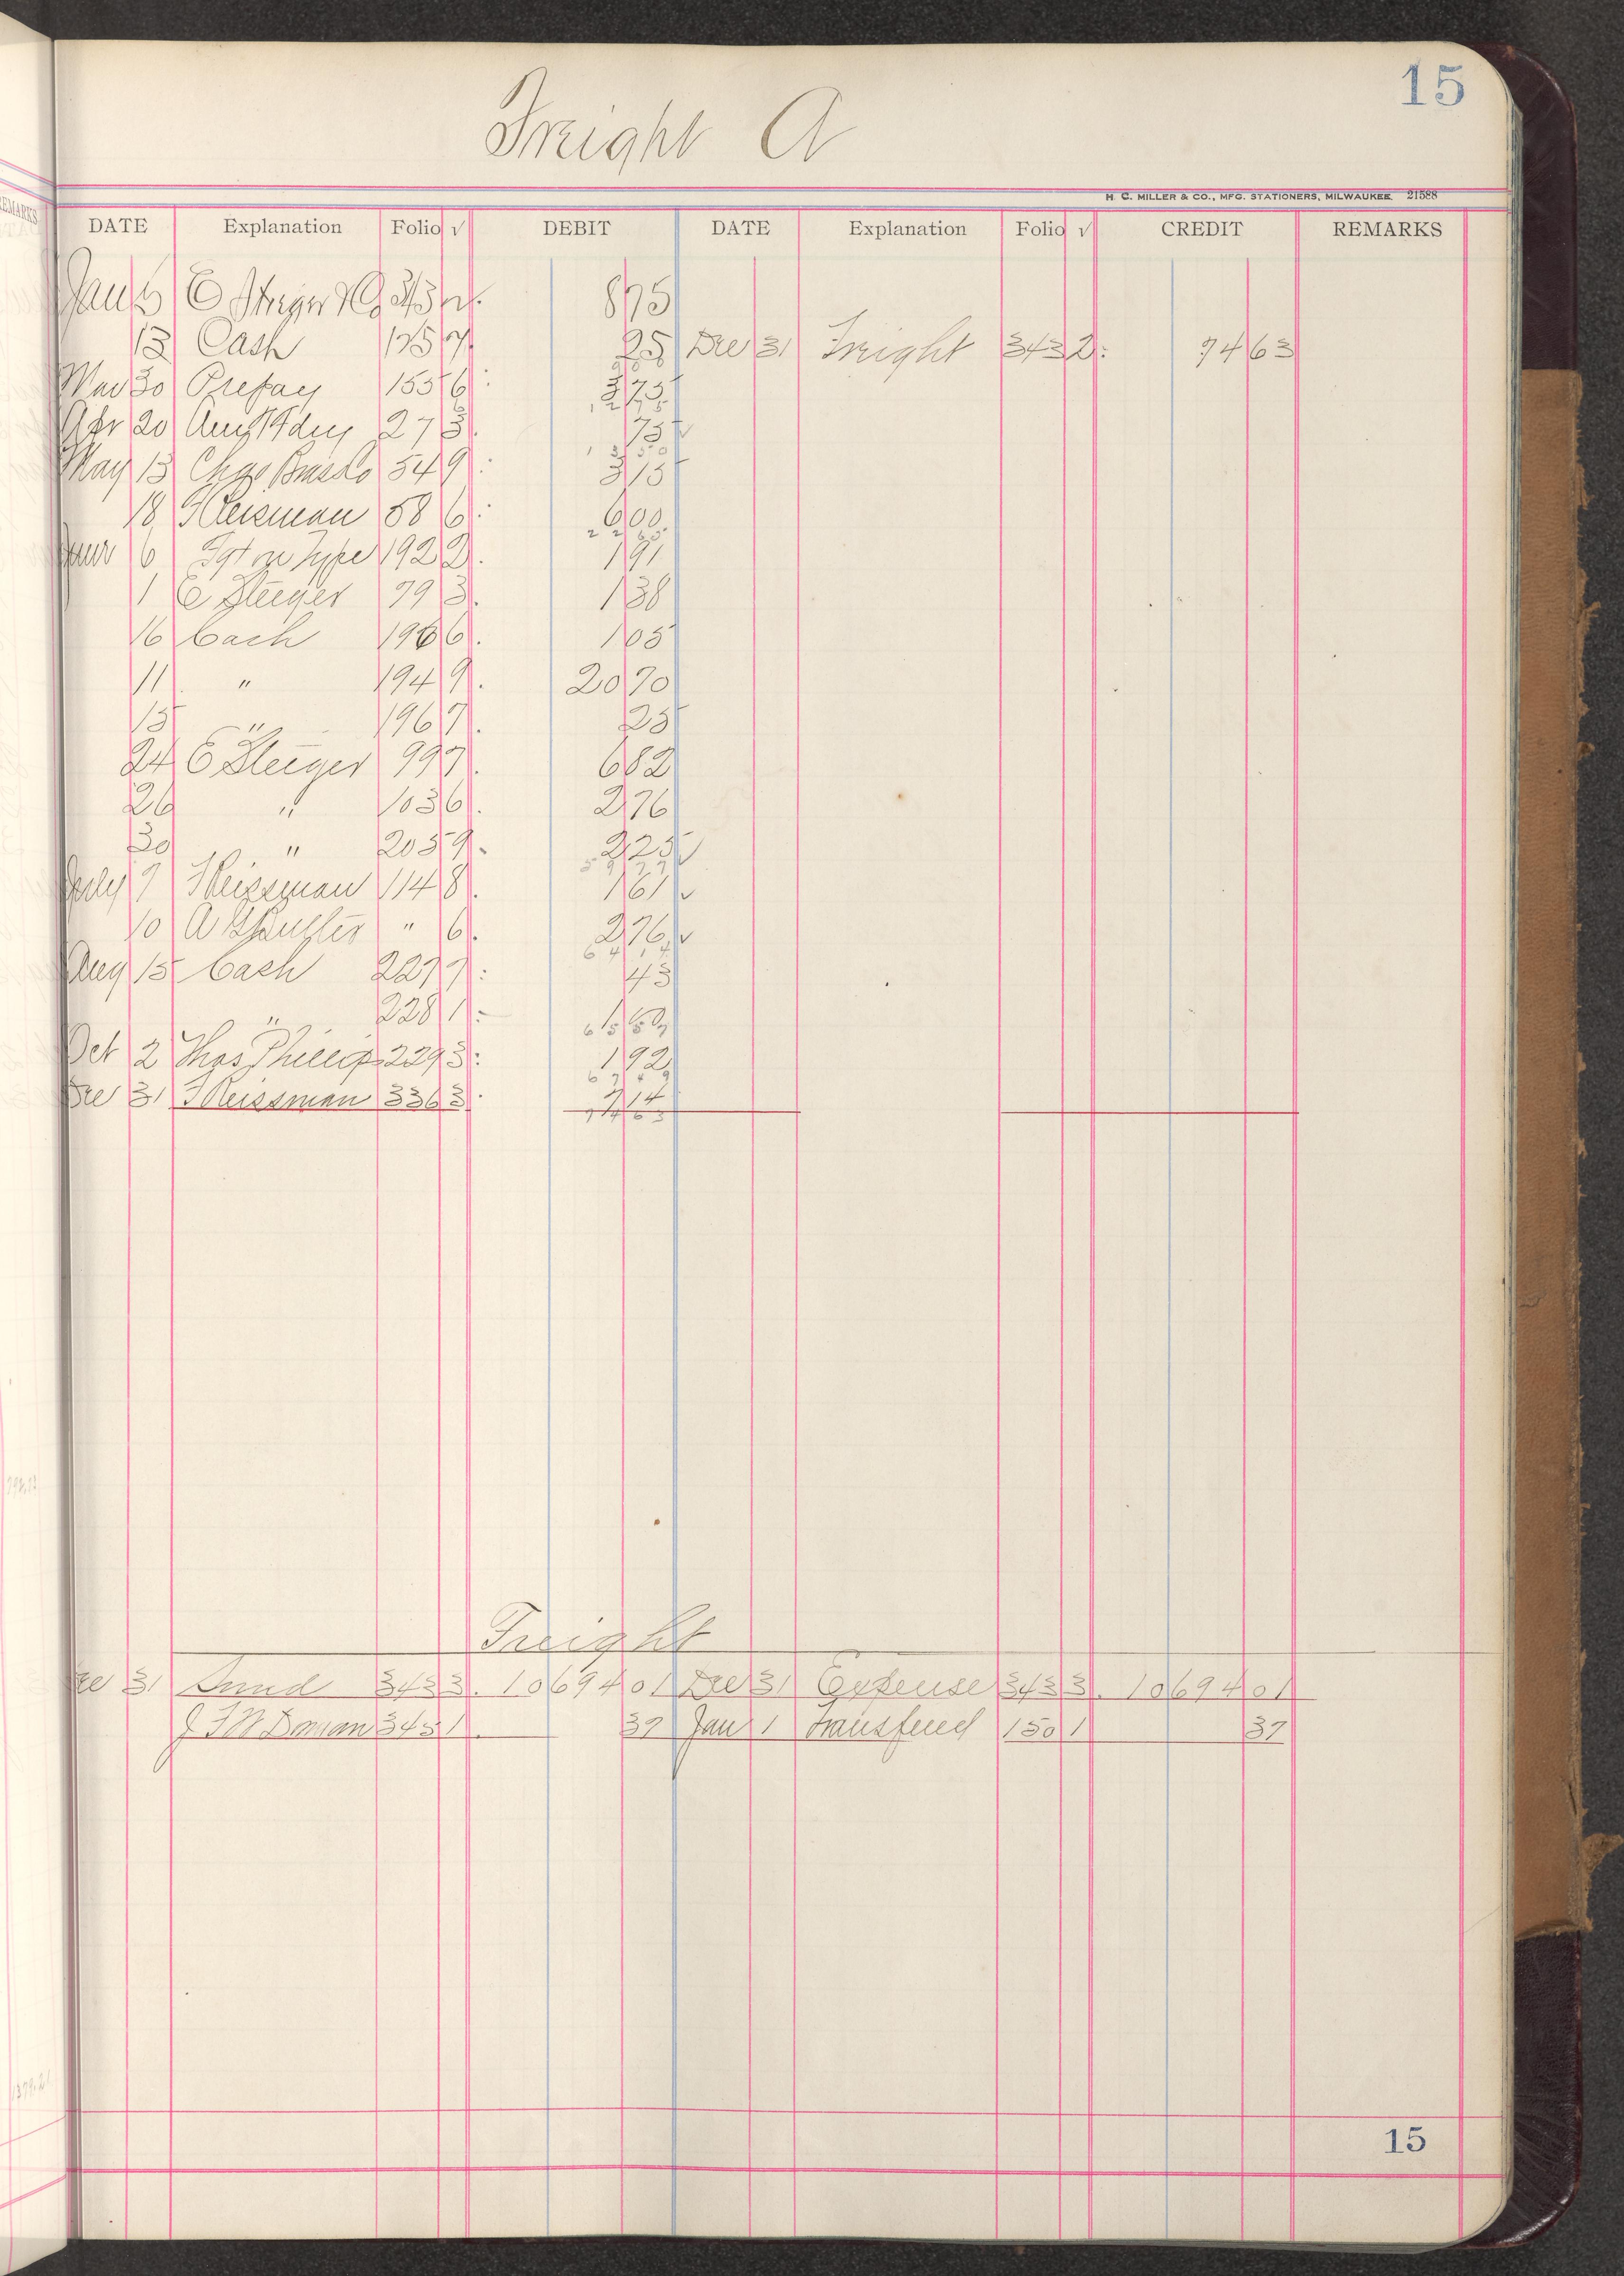 15
Freight A
H. C. MILLER & CO., MFG. STATIONERS, MILWAUKEE. 21588
DATE Explanation Folio √ DEBIT DATE Explanation Folio √ CREDIT REMARKS
Jan 5 E Steiger & Co 343 2. 8 75
13 Cash 175 7. 25 Dec 31 Freight 343 2. 74 63
9 00
Mar 30 Prepay 155 6 3 75
12 75
Apr 20 27 3. 75 √
13 50
May 13 Chas 54 9 3 15
18 F Reisman 58 6 6 00
22 65
June 6 Fgt on Type 192 2. 1 91
1 E Steiger 79 3. 1 38
16 Cash 196 6. 1 05
11 " 194 9. 20 70
15 " 196 7. 25
24 E Steiger 99 7. 6 82
26 " 103 6. 2 76
30 " 205 9. 2 25 √
59 77
July 7 F Reissman 114 8. 1 61 √
10 " 6. 2 76 √
64 14
Aug 15 Cash 227 7. 43
" 228 1. 1 00
65 57
Oct 2 Thos Phillips 229 3. 1 92
67 49
Dec 31 F Reissman 336 3. 7 14
74 63
Freight
Dec 31 Sund 343 3. 10694 01 Dec 31 Expense 343 3. 10694 01
J F W Dorman 345 1. 37 Jan 1 Transferred 150 1 37
15